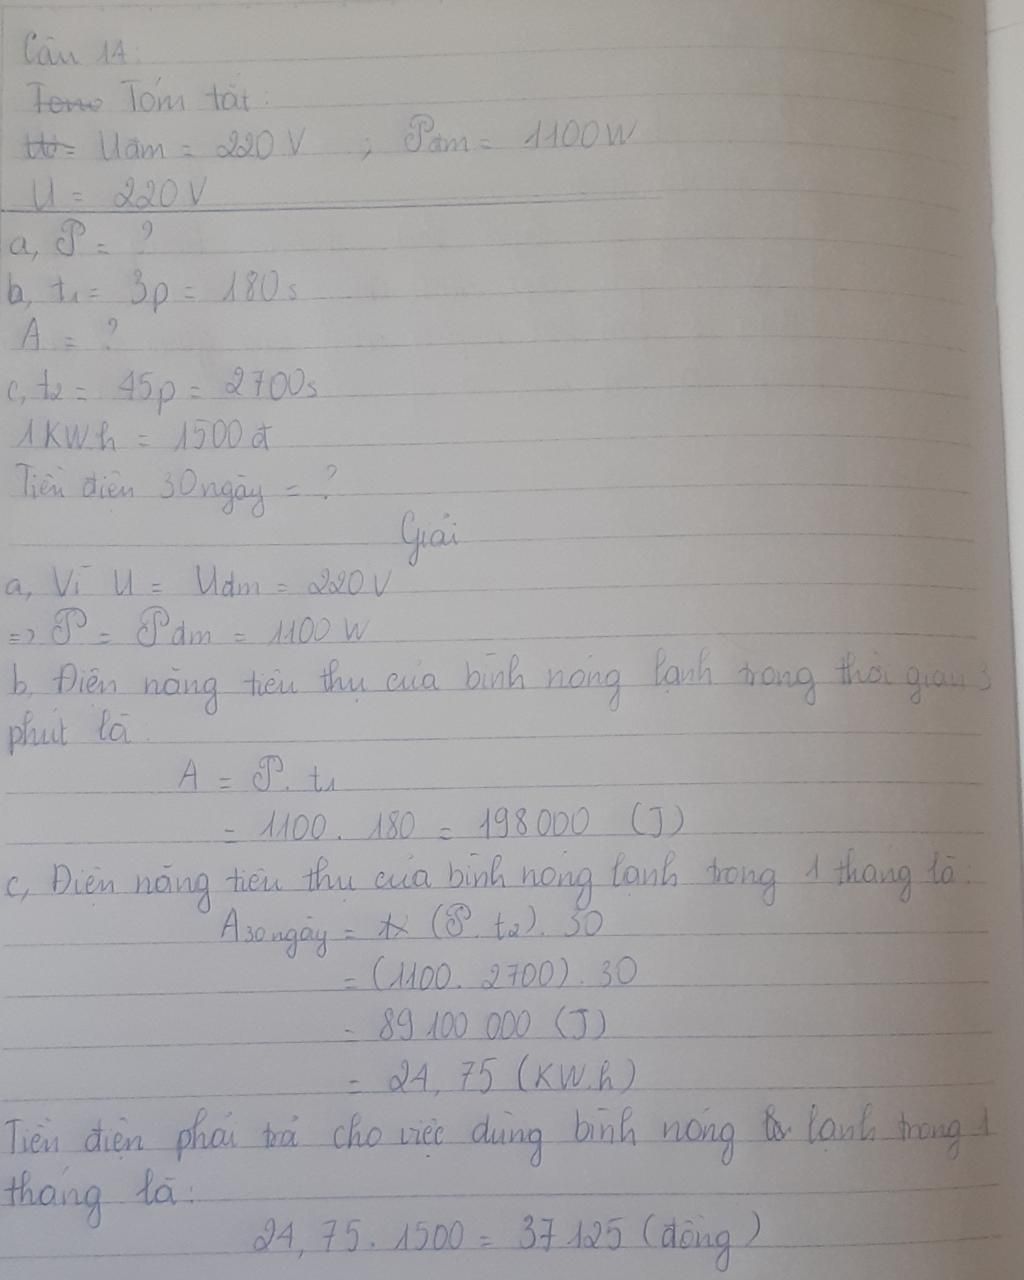 Câu 14:
Tóm tắt:
Uđm = 220 V ; Pđm = 1100 W
U = 220 V
a, P = ?
b, t1 = 3p = 180s
A = ?
c, t2 = 45p = 2700s
1KWh = 1500 đ
Tiền điện 30 ngày = ?
Giải
a, Vì U = Uđm = 220 V
=> P = Pđm = 1100 W
b, Điện năng tiêu thụ của bình nóng lạnh trong thời gian 3
phút là:
A = P. t1
= 1100. 180 = 198000 (J)
c, Điện năng tiêu thụ của bình nóng lạnh trong 1 tháng là:
A30ngày = (P. t2). 30
= (1100. 2700). 30
= 89100 000 (J)
= 24,75 (KW.h)
Tiền điện phải trả cho việc dùng bình nóng lạnh trong 1
tháng là:
24,75. 1500 = 37125 (đồng)